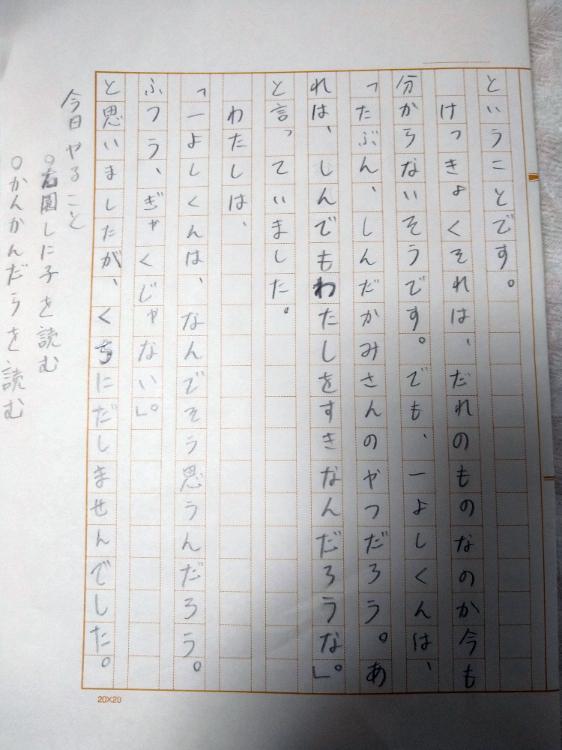 ということです。
けっきょくそれは、だれのものなのか今も
分からないそうです。でも、一よしくんは、
「たぶん、しんだかみさんのやつだろう。あ
れは、しんでもわたしをすきなんだろうな」。
と言っていました。
わたしは、
「一よしくんは、なんでそう思うんだろう。
ふつう、ぎゃくじゃない」。
と思いましたが、くちにだしませんでした。
今日やること
○右園しに子を読む
○かんかんだらを読む
20×20